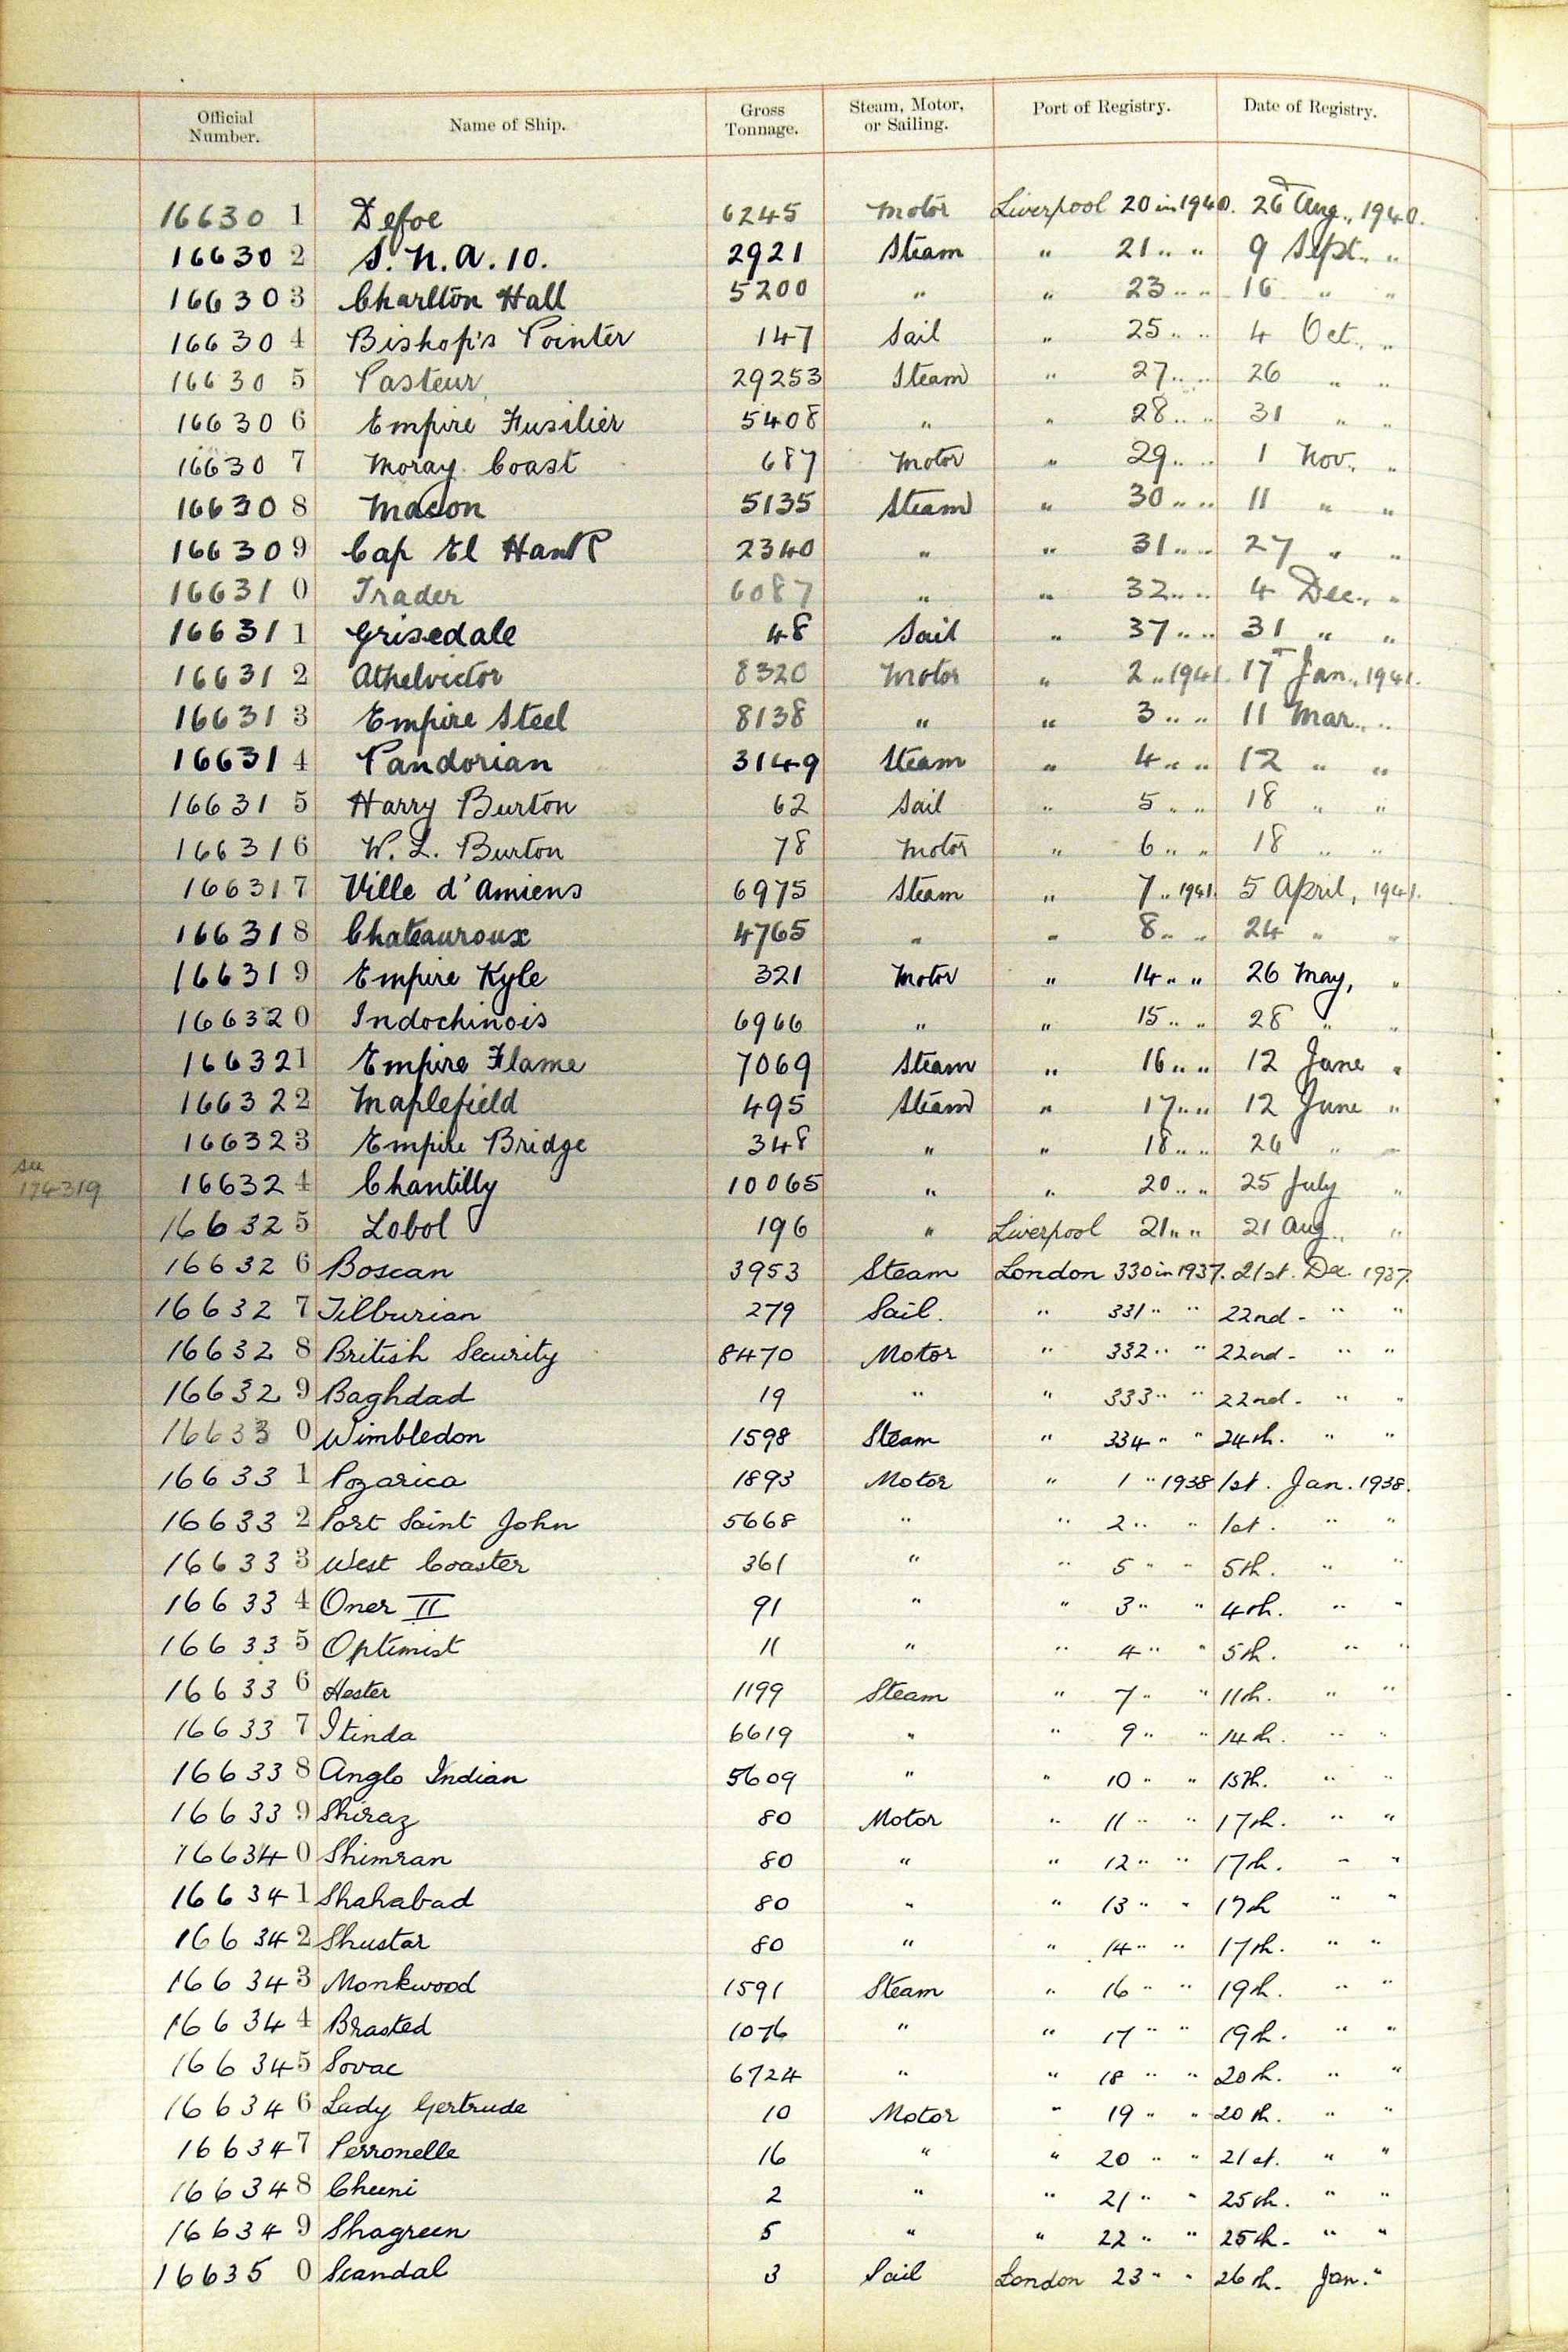 Official Number. Name of Ship. Gross Tonnage. Steam, Motor, or Sailing. Port of Registry. Date of Registry.
166301 Defoe 6245 Motor Liverpool 20 in 1940. 26 Aug., 1940.
166302 S.N.A.10. 2921 Steam " 21 " " 9 Sept., "
166303 Charlton Hall 5200 " " 23 " " 16 " "
166304 Bishop's Pointer 147 Sail " 25 " " 4 Oct., "
166305 Pasteur 29253 Steam " 27 " " 26 " "
166306 Empire Fusilier 5408 " " 28 " " 31 " "
166307 Moray Coast 687 Motor " 29 " " 1 Nov., "
166308 Macon 5135 Steam " 30 " " 11 " "
166309 Cap El Hank 2340 " " 31 " " 27 " "
166310 Trader 6087 " " 32 " " 4 Dec., "
166311 Grisedale 48 Sail " 37 " " 31 " "
166312 Athelvictor 8320 Motor " 2 " 1941. 17 Jan., 1941.
166313 Empire Steel 8138 " " 3 " " 11 Mar., "
166314 Pandorian 3149 Steam " 4 " " 12 " "
166315 Harry Burton 62 Sail " 5 " " 18 " "
166316 W. L. Burton 78 Motor " 6 " " 18 " "
166317 Ville d'Amiens 6975 Steam " 7 " 1941. 5 April, 1941.
166318 Chateauroux 4765 " " 8 " " 24 " "
166319 Empire Kyle 321 Motor " 14 " " 26 May, "
166320 Indochinois 6966 " " 15 " " 28 " "
166321 Empire Flame 7069 Steam " 16 " " 12 June "
166322 Maplefield 495 Steam " 17 " " 12 June "
166323 Empire Bridge 348 " " 18 " " 26 " "
see 174319 166324 Chantilly 10065 " " 20 " " 25 July "
166325 Lobol 196 " Liverpool 21 " " 21 Aug., "
166326 Boscan 3953 Steam London 330 in 1937. 21st. Dec. 1937.
166327 Tilburian 279 Sail. " 331 " " 22nd. " "
166328 British Security 8470 Motor " 332 " " 22nd. " "
166329 Baghdad 19 " " 333 " " 22nd. " "
166330 Wimbledon 1598 Steam " 334 " " 24th. " "
166331 Pozarica 1893 Motor " 1 " 1938 1st. Jan. 1938.
166332 Port Saint John 5668 " " 2 " " 1st. " "
166333 West Coaster 361 " " 5 " " 5th. " "
166334 Oner II 91 " " 3 " " 4th. " "
166335 Optimist 11 " " 4 " " 5th. " "
166336 Hester 1199 Steam " 7 " " 11th. " "
166337 Itinda 6619 " " 9 " " 14th. " "
166338 Anglo Indian 5609 " " 10 " " 15th. " "
166339 Shiraz 80 Motor " 11 " " 17th. " "
166340 Shimran 80 " " 12 " " 17th. " "
166341 Shahabad 80 " " 13 " " 17th " "
166342 Shustar 80 " " 14 " " 17th. " "
166343 Monkwood 1591 Steam " 16 " " 19th. " "
166344 Brasted 1076 " " 17 " " 19th. " "
166345 Sovac 6724 " " 18 " " 20th. " "
166346 Lady Gertrude 10 Motor " 19 " " 20th. " "
166347 Perronelle 16 " " 20 " " 21st. " "
166348 Cheeni 2 " " 21 " " 25th. " "
166349 Shagreen 5 " " 22 " " 25th. " "
166350 Scandal 3 Sail London 23 " " 26th. Jan. "